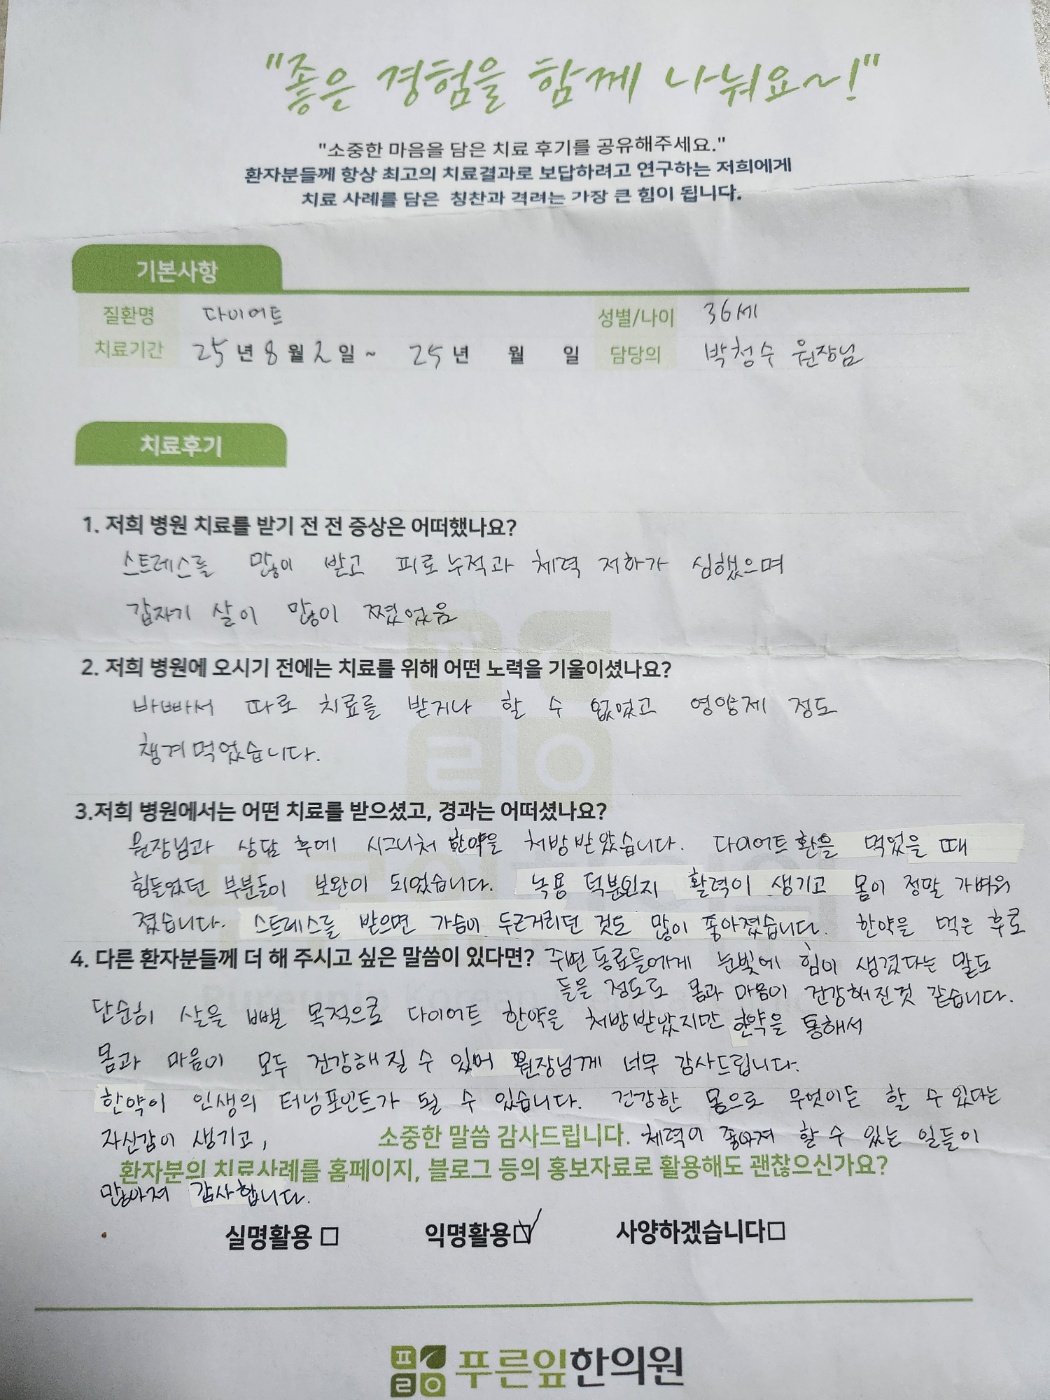 "좋은 경험을 함께 나눠요~!"
"소중한 마음을 담은 치료 후기를 공유해주세요."
환자분들께 항상 최고의 치료결과로 보답하려고 연구하는 저희에게
치료 사례를 담은 칭찬과 격려는 가장 큰 힘이 됩니다.
기본사항
질환명 다이어트 성별/나이 36세
치료기간 25년 8월 2일 ~ 25년 월 일 담당의 박청수 원장님
치료후기
1. 저희 병원 치료를 받기 전 전 증상은 어떠했나요?
스트레스를 많이 받고 피로누적과 체력 저하가 심했으며
갑자기 살이 많이 쪘었음
2. 저희 병원에 오시기 전에는 치료를 위해 어떤 노력을 기울이셨나요?
바빠서 따로 치료를 받거나 할 수 없었고 영양제 정도
챙겨먹었습니다.
3.저희 병원에서는 어떤 치료를 받으셨고, 경과는 어떠셨나요?
원장님과 상담 후에 시그니처 한약을 처방받았습니다. 다이어트환을 먹었을 때
힘들었던 부분들이 보완이 되었습니다. 녹용 덕분인지 활력이 생기고 몸이 정말 가벼워
졌습니다. 스트레스를 받으면 가슴이 두근거리던 것도 많이 좋아졌습니다. 한약을 먹은 후로
4. 다른 환자분들께 더 해 주시고 싶은 말씀이 있다면? 주변 동료들에게 눈빛에 힘이 생겼다는 말도
들을 정도로 몸과 마음이 건강해진것 같습니다.
단순히 살을 뺄 목적으로 다이어트 한약을 처방받았지만 한약을 통해서
몸과 마음이 모두 건강해질 수 있어 원장님께 너무 감사드립니다.
한약이 인생의 터닝포인트가 될 수 있습니다. 건강한 몸으로 무엇이든 할 수 있다는
자신감이 생기고, 소중한 말씀 감사드립니다. 체력이 좋아져 할 수 있는 일들이
환자분의 치료사례를 홈페이지, 블로그 등의 홍보자료로 활용해도 괜찮으신가요?
많아져 감사합니다.
실명활용 □ 익명활용☑ 사양하겠습니다□
푸른잎한의원